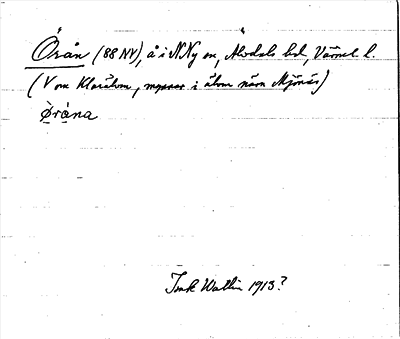 Örån (88 NV), å i N Ny sn, Älvdals hd, Värml l.
(V om Klarälven, mynnar i älven nära Mjönäs)
Ọ̀rạ́na
Wallin 1913?